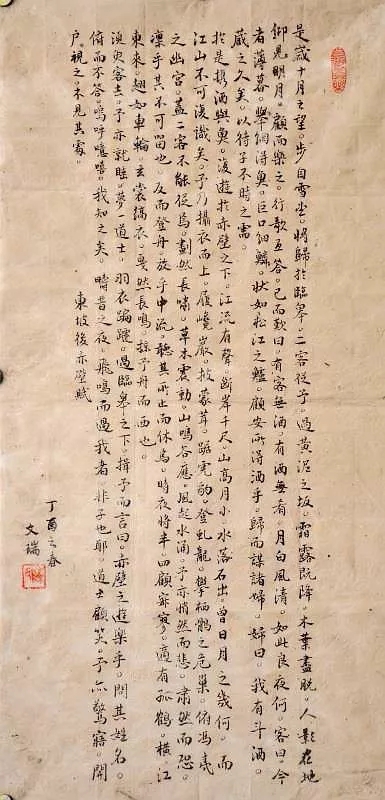 是歲十月之望。步自雪堂。將歸於臨皋。二客從予。過黃泥之坂。霜露既降。木葉盡脫。人影在地
仰見明月。顧而樂之。行歌互答。已而歎曰。有客無酒。有酒無肴。月白風清。如此良夜何。客曰。今
者薄暮。舉網得魚。巨口細鱗。狀如松江之鱸。顧安所得酒乎。歸而謀諸婦。婦曰。我有斗酒。
藏之久矣。以待子不時之需。
於是攜酒與魚。復遊於赤壁之下。江流有聲。斷岸千尺。山高月小。水落石出。曾日月之幾何。而
江山不可復識矣。予乃攝衣而上。履巉巖。披蒙茸。踞虎豹。登虬龍。攀栖鶻之危巢。俯馮夷
之幽宮。蓋二客不能從焉。劃然長嘯。草木震動。山鳴谷應。風起水涌。予亦悄然而悲。肅然而恐。
凜乎其不可留也。反而登舟。放乎中流。聽其所止而休焉。時夜將半。四顧寂寥。適有孤鶴。橫江
東來。翅如車輪。玄裳縞衣。戛然長鳴。掠予舟而西也。
須臾客去。予亦就睡。夢一道士。羽衣蹁躚。過臨皋之下。揖予而言曰。赤壁之遊樂乎。問其姓名。
俯而不答。嗚呼噫嘻。我知之矣。疇昔之夜。飛鳴而過我者。非子也耶。道士顧笑。予亦驚寤。開
戶視之。不見其處。
東坡後赤壁賦
丁酉之春
文瑞